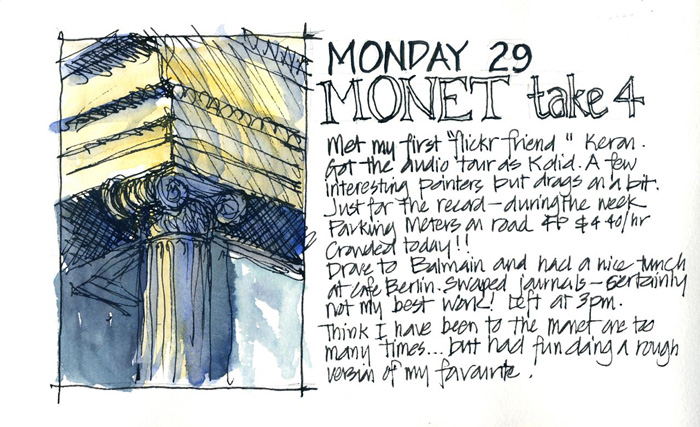 MONDAY 29
MONET take 4
Met my first "flickr friend" Keran.
Got the audio tour as Kolid. A few
interesting pointers but drags on a bit.
Just for the record - during the week
Parking Meters on road $4.40/hr
Crowded today!!
Drove to Balmain and had a nice lunch
at Cafe Berlin. Swaped journals - certainly
not my best work! Left at 3pm.
Think I have been to the Monet one too
many times... but had fun doing a rough
version of my favourite.